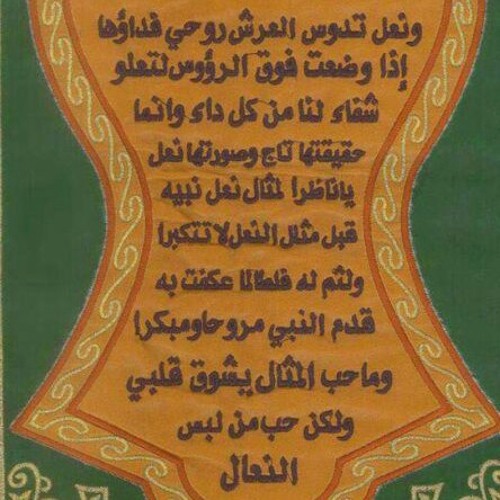 ونعل تدوس العرش روحي فداؤها
إذا وضعت فوق الرؤوس لتعلو
شفاء لنا من كل داء وانما
حقيقتها تاج وصورتها نعل
ياناظرا لمثال نعل نبيه
قبل مثال النعل لا تتكبرا
ولثم له فلطالما عكفت به
قدم النبي مروحا ومبكرا
وماحب المثال يشوق قلبي
ولكن حب من لبس
النعال